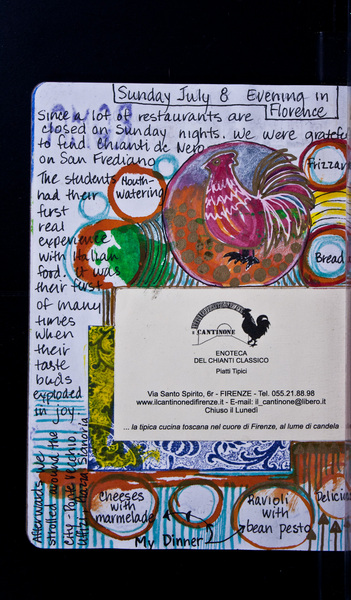 Sunday July 8 Evening in
Florence
Since a lot of restaurants are
closed on Sunday nights, we were grateful
to find Chianti de Nero
on San Frediano
The students
had their
first
real
experience
with Italian
food. It was
their first
of many
times
when
their
taste
buds
exploded
in joy.
Mouth-
watering
Frizzan
Bread
IL CANTINONE
ENOTECA
DEL CHIANTI CLASSICO
Piatti Tipici
Via Santo Spirito, 6r - FIRENZE - Tel. 055.21.88.98
www.ilcantinonedifirenze.it - E-mail: il_cantinone@libero.it
Chiuso il Lunedì
... la tipica cucina toscana nel cuore di Firenze, al lume di candela
Afterwards we
strolled around the
City - Ponte Vecchio
Uffizi - Piazza Signoria
Cheeses
with
marmelade
My Dinner
Ravioli
with
bean pesto
Delicio